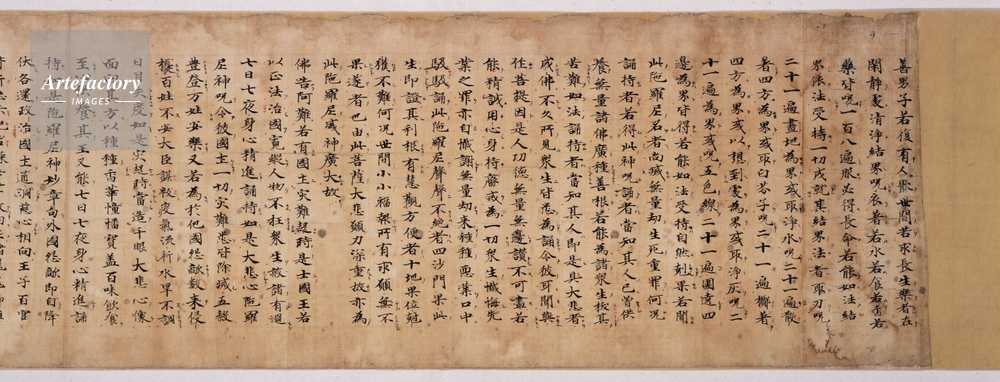 善男子若復有人猒世間苦求長生樂者在
閑静處清淨結界呪衣著若水若食若香若
藥皆呪一百八遍服必得長命若能如法結
界依法受持一切成就其結界法者取刀呪
二十一遍畫地為界或取淨水呪二十一遍散
著四方為界或取白芥子呪二十一遍擲著
四方為界或以想到處為界或取淨灰呪二
十一遍為界或呪五色線二十一遍圍遶四
邊為界皆得若能如法受持自然剋果若聞
此陁羅尼名者尚滅無量劫生死重罪何況
誦持者若得此神呪誦者當知其人已曾供
養無量諸佛廣種善根若能為諸衆生拔其
苦難如法誦持者當知其人即是具大悲者
成佛不久所見衆生皆悉為誦令彼耳聞與
作菩提因是人功德無量無邊讚不可盡若
能精誠用心身持齋戒為一切衆生懺悔先
業之罪亦自懺謝無量劫来種種惡業口中
馺馺誦此陁羅尼聲聲不絶者四沙門果此
生即證其利根有慧觀方便者十地果位尅
獲不難何況世間小小福報所有求願無不
果遂者也由此菩薩大悲願力深重故亦為
此陁羅尼威神廣大故
佛告阿難若有國土灾難起時是土國王若
以正法治國寛縱人物不枉衆生赦諸有過
七日七夜身心精進誦持如是大悲心陁羅
尼神呪令彼國土一切灾難悉皆除滅五糓
豊登万姓安樂又若為於他國怨敵數来侵
擾百姓不安大臣謀叛疫氣流行水旱不調
日月失度如是灾起時當造千眼大悲心像
面西方以種種香華幢幡寳盖百味飲食
至養其王又能七日七夜身心精進誦
持是陁羅尼神妙章句外國怨敵即自降
伏各還政治國土通洞慈心相向王子百官
Artefactory
IMAGES